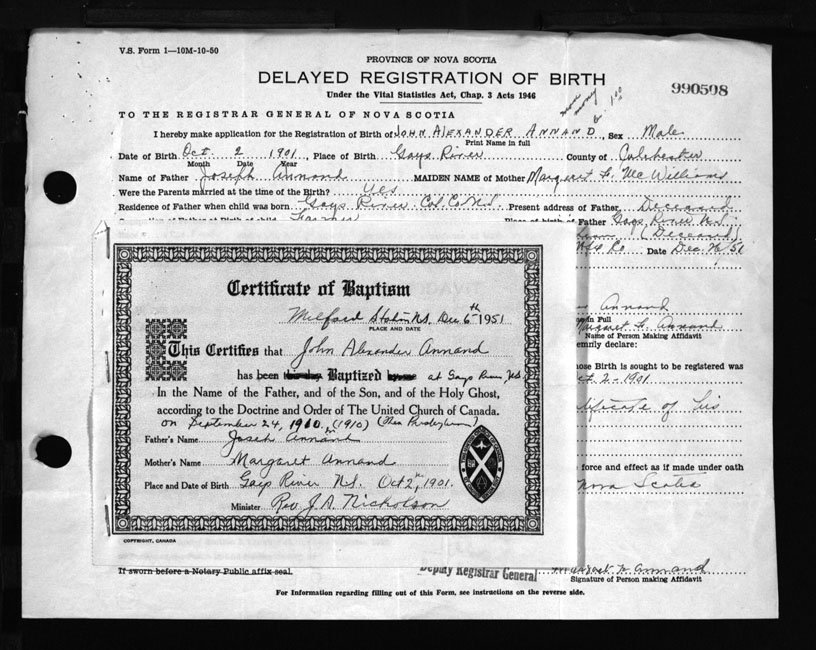 V.S. Form 1—10M-10-50
PROVINCE OF NOVA SCOTIA
DELAYED REGISTRATION OF BIRTH
Under the Vital Statistics Act, Chap. 3 Acts 1946
990508
TO THE REGISTRAR GENERAL OF NOVA SCOTIA
I hereby make application for the Registration of Birth of JOHN ALEXANDER ANNAND, Sex Male
Print Name in full
Date of Birth Oct. 2 1901, Place of Birth Gays River County of Colchester
Month Date Year
Name of Father Joseph Annand MAIDEN NAME of Mother Margaret F. McWilliams
Were the Parents married at the time of the Birth? Yes
Residence of Father when child was born Gays River Col. Co N.S. Present address of Father Deceased
Farmer Place of birth of Father Gays River N.S.
(Deceased)
Co Date Dec
Certificate of Baptism
Milford Station N.S. Dec 6th 1951
PLACE AND DATE
This Certifies that John Alexander Annand
has been Baptized at Gays River N.S.
In the Name of the Father, and of the Son, and of the Holy Ghost,
according to the Doctrine and Order of The United Church of Canada.
on September 24, 1910. (1910) (Then Presbyterian)
Father's Name Joseph Annand
Mother's Name Margaret Annand
Place and Date of Birth Gays River N.S. Oct 2nd, 1901.
Minister Rev J. A. Nicholson
COPYRIGHT, CANADA
Annand
in Full
Margaret F. Annand
Name of Person Making Affidavit
emnly declare:
hose Birth is sought to be registered was
ct 2 - 1901
tificate of his
force and effect as if made under oath
Nova Scotia
If sworn before a Notary Public affix seal.
Deputy Registrar General
Margaret F. Annand
Signature of Person making Affidavit
For Information regarding filling out of this Form, see instructions on the reverse side.